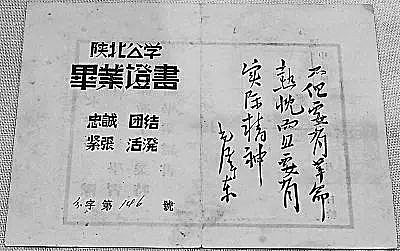 陕北公学
畢業證書
忠誠 团结
紧張 活潑
字第 146 號
不但要有革命
热忱而且要有
实际精神
毛泽东